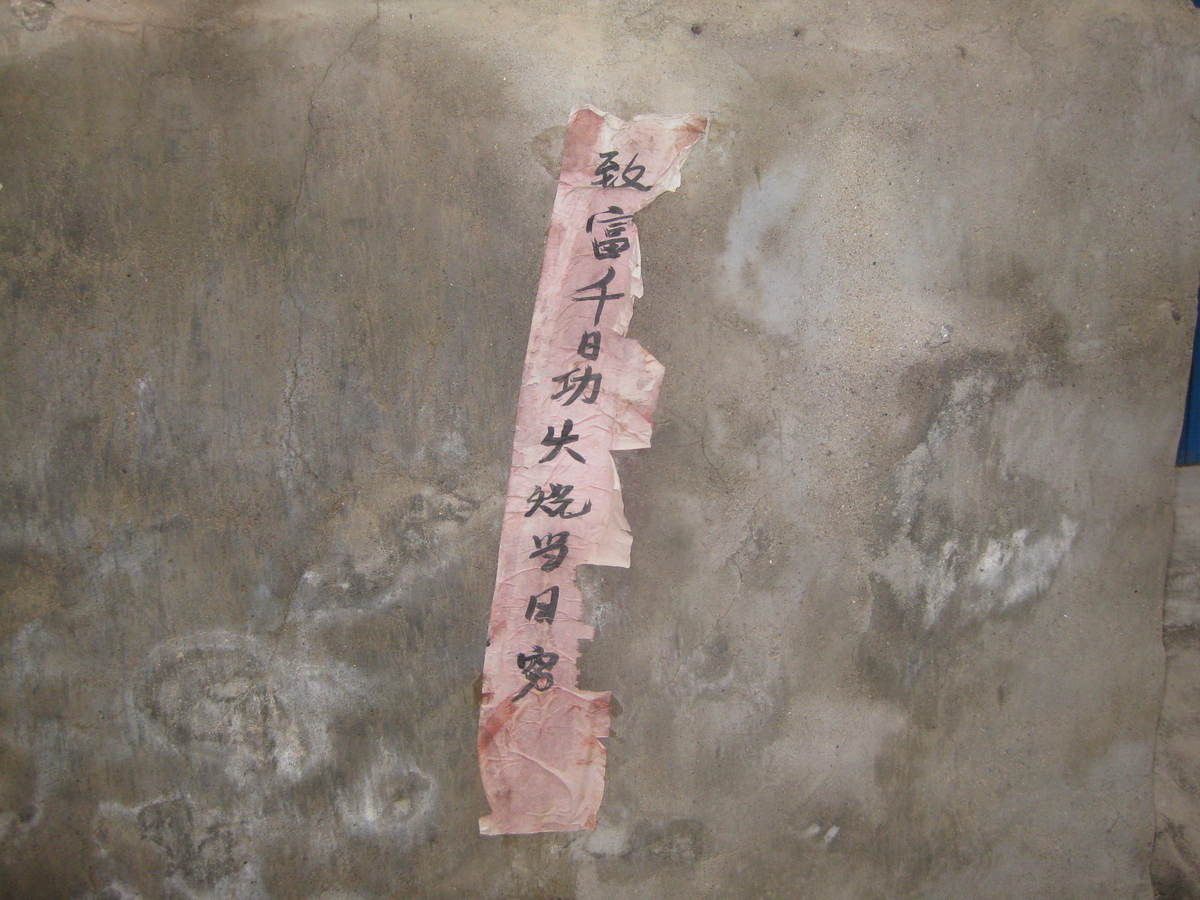 致富千日功失烧当日穷